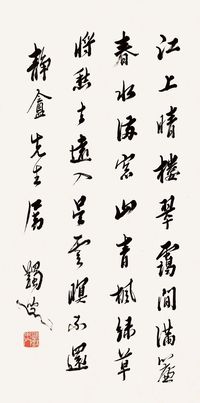 江上晴樓翠靄間滿簾
春水滿窗山青楓綠草
將愁去遠入吳雲暝不還
靜盦先生屬